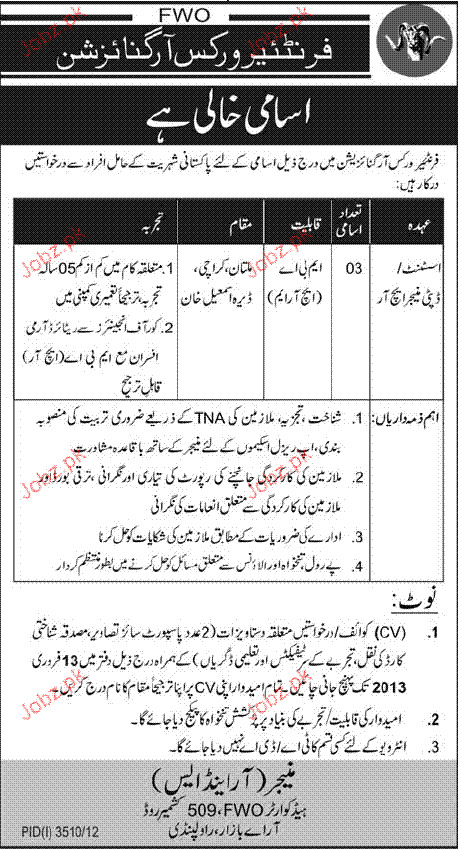 FWO
فرنٹیئر ورکس آرگنائزشن
اسامی خالی ہے
فرنٹیر ورکس آرگنائزیشن میں درج ذیل اسامی کے لئے پاکستانی شہریت کے حامل افراد سے درخواستیں
درکار ہیں:
عہدہ تعداد اسامی قابلیت مقام تجربہ
اسسٹنٹ/ 03 ایم بی اے ملتان، کراچی، 1. متعلقہ کام میں کم از کم 05 سالہ
ڈپٹی منیجر ایچ آر (ایچ آر ایم) ڈیرہ اسمعیل خان تجربہ ترجیحاً تعمیری کمپنی میں
2. کور آف انجینئرز سے ریٹائرڈ آرمی
افسران مع ایم بی اے (ایچ آر)
قابل ترجیح
اہم ذمہ داریاں: 1. شناخت، تجزیہ، ملازمین کی TNA کے ذریعے ضروری تربیت کی منصوبہ
بندی، اپ ریزل اسکیموں کے لئے منیجر کے ساتھ باقاعدہ مشاورت
2. ملازمین کی کارکردگی جانچنے کی رپورٹ کی تیاری اور نگرانی، ترقی بورڈ اور
ملازمین کی کارکردگی سے متعلق انعامات کی نگرانی
3. ادارے کی ضروریات کے مطابق ملازمین کی شکایات کو حل کرنا
4. پے رول، تنخواہ اور الاؤنس سے متعلق مسائل کو حل کرنے میں بطور منتظم کردار
نوٹ:
1. (CV) کوائف/درخواستیں متعلقہ دستاویزات (2 عدد پاسپورٹ سائز تصاویر، مصدقہ شناختی
کارڈ کی نقل، تجربے کے سرٹیفکیٹس اور تعلیمی ڈگریاں) کے ہمراہ درج ذیل دفتر میں 13 فروری
2013 تک پہنچ جانی چاہئیں۔ تمام امیدوار اپنی CV پر اپنا ترجیحاً مقام کا نام درج کریں۔
2. امیدوار کی قابلیت/تجربے کی بنیاد پر پُرکشش تنخواہ کا پیکج دیا جائے گا۔
3. انٹرویو کے لئے کسی قسم کا ٹی اے/ڈی اے نہیں دیا جائے گا۔
منیجر (آر اینڈ ایس)
ہیڈ کوارٹر FWO، 509 کشمیر روڈ
آر اے بازار، راولپنڈی
PID(I) 3510/12
Jobz.pk
Jobz.pk
Jobz.pk
Jobz.pk
Jobz.pk
Jobz.pk
Jobz.pk
Jobz.pk